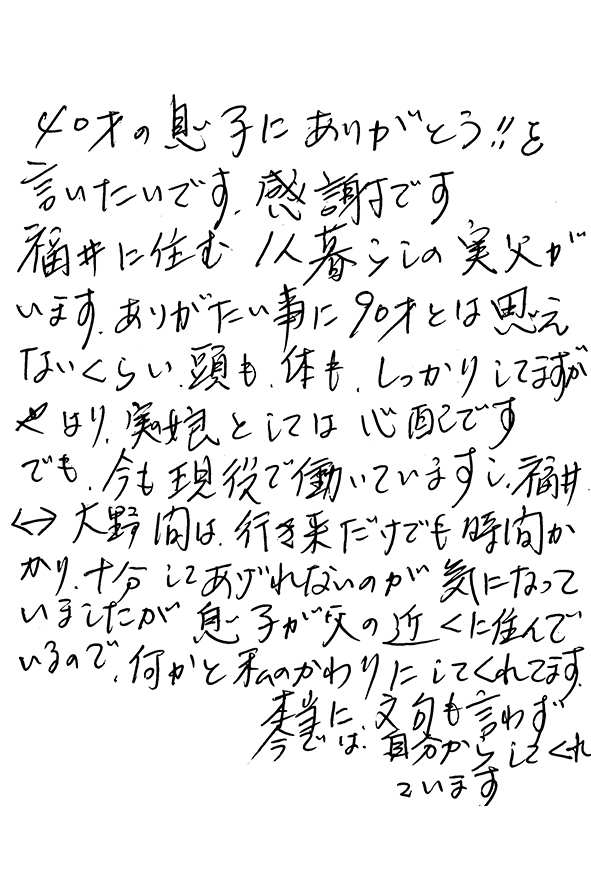 40才の息子にありがとう!!を
言いたいです、感謝です
福井に住む1人暮らしの実父が
います、ありがたい事に90才とは思え
ないくらい、頭も、体も、しっかりしてますが
やはり、実娘としては心配です
でも、今も現役で働いていますし、福井
↔大野間は、行き来だけでも時間か
かり、十分してあげれないのが気になって
いましたが息子が父の近くに住んで
いるので、何かと私のかわりにしてくれてます、
本当に、文句も言わず
今では、自分からしてくれ
ています